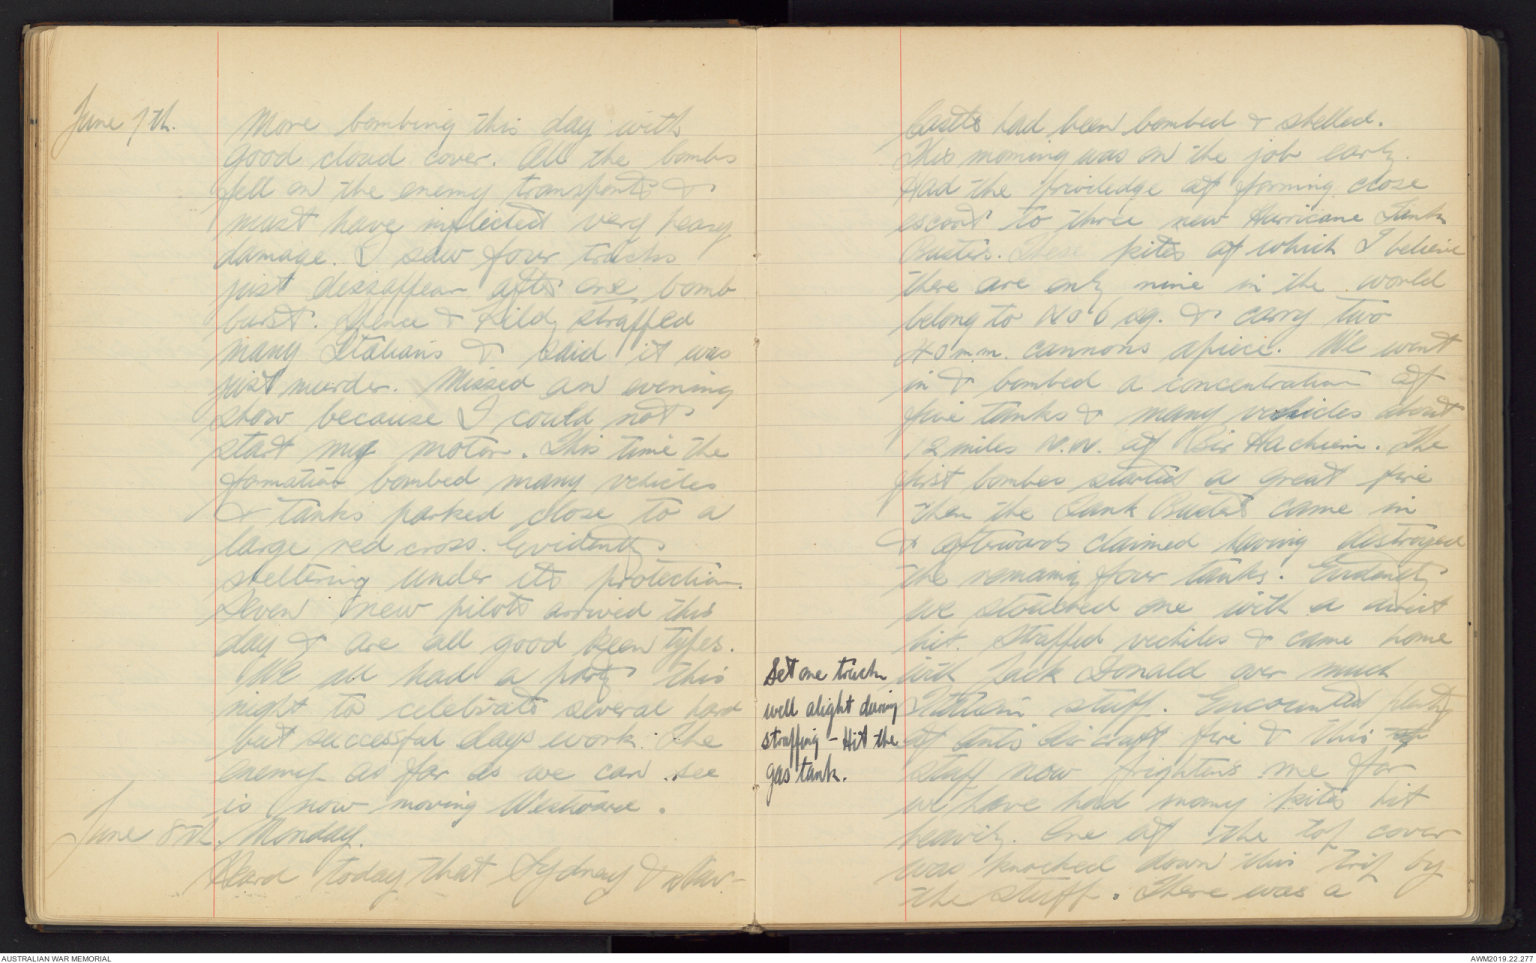 June 7th.
More bombing this day with
good cloud cover. All the bombs
fell on the enemy transports &
must have inflicted very heavy
damage. I saw four trucks
just dissappear after one bomb
burst. Spence & Reid straffed
many Italians & said it was
just murder. Missed an evening
show because I could not
start my motor. This time the
formation bombed many vehicles
& tanks parked close to a
large red cross. Evidently
sheltering under its protection.
Seven new pilots arrived this
day & are all good keen types.
We all had a party this
night to celebrate several hard
but successful days work. The
enemy as far as we can see
is now moving Westward.
June 8th. Monday.
Heard today that Sydney & New-
Castle had been bombed & shelled.
This morning was on the job early.
Had the priviledge of forming close
escort to three new Hurricane Tank
Busters. These kites of which I believe
there are only nine in the world
belong to No 6 sq. & carry two
40 m.m. cannons apiece. We went
in & bombed a concentration of
five tanks & many vehicles about
12 miles N.W. of Bir Hacheim. The
first bomber started a great fire
then the Tank Busters came in
& aftwards claimed having destroyed
the remaing four tanks. Evidently
we stonked one with a direct
hit. Straffed vechiles & came home
with Jack Donald over much
Italian stuff. Encounted plenty
of Anti Aircraft fire & this
stuff now frightens me for
we have had many kites hit
heavily. One of the top cover
was knocked down this trip by
the stuff. There was a
Set one truck
well alight during
straffing - Hit the
gas tank.